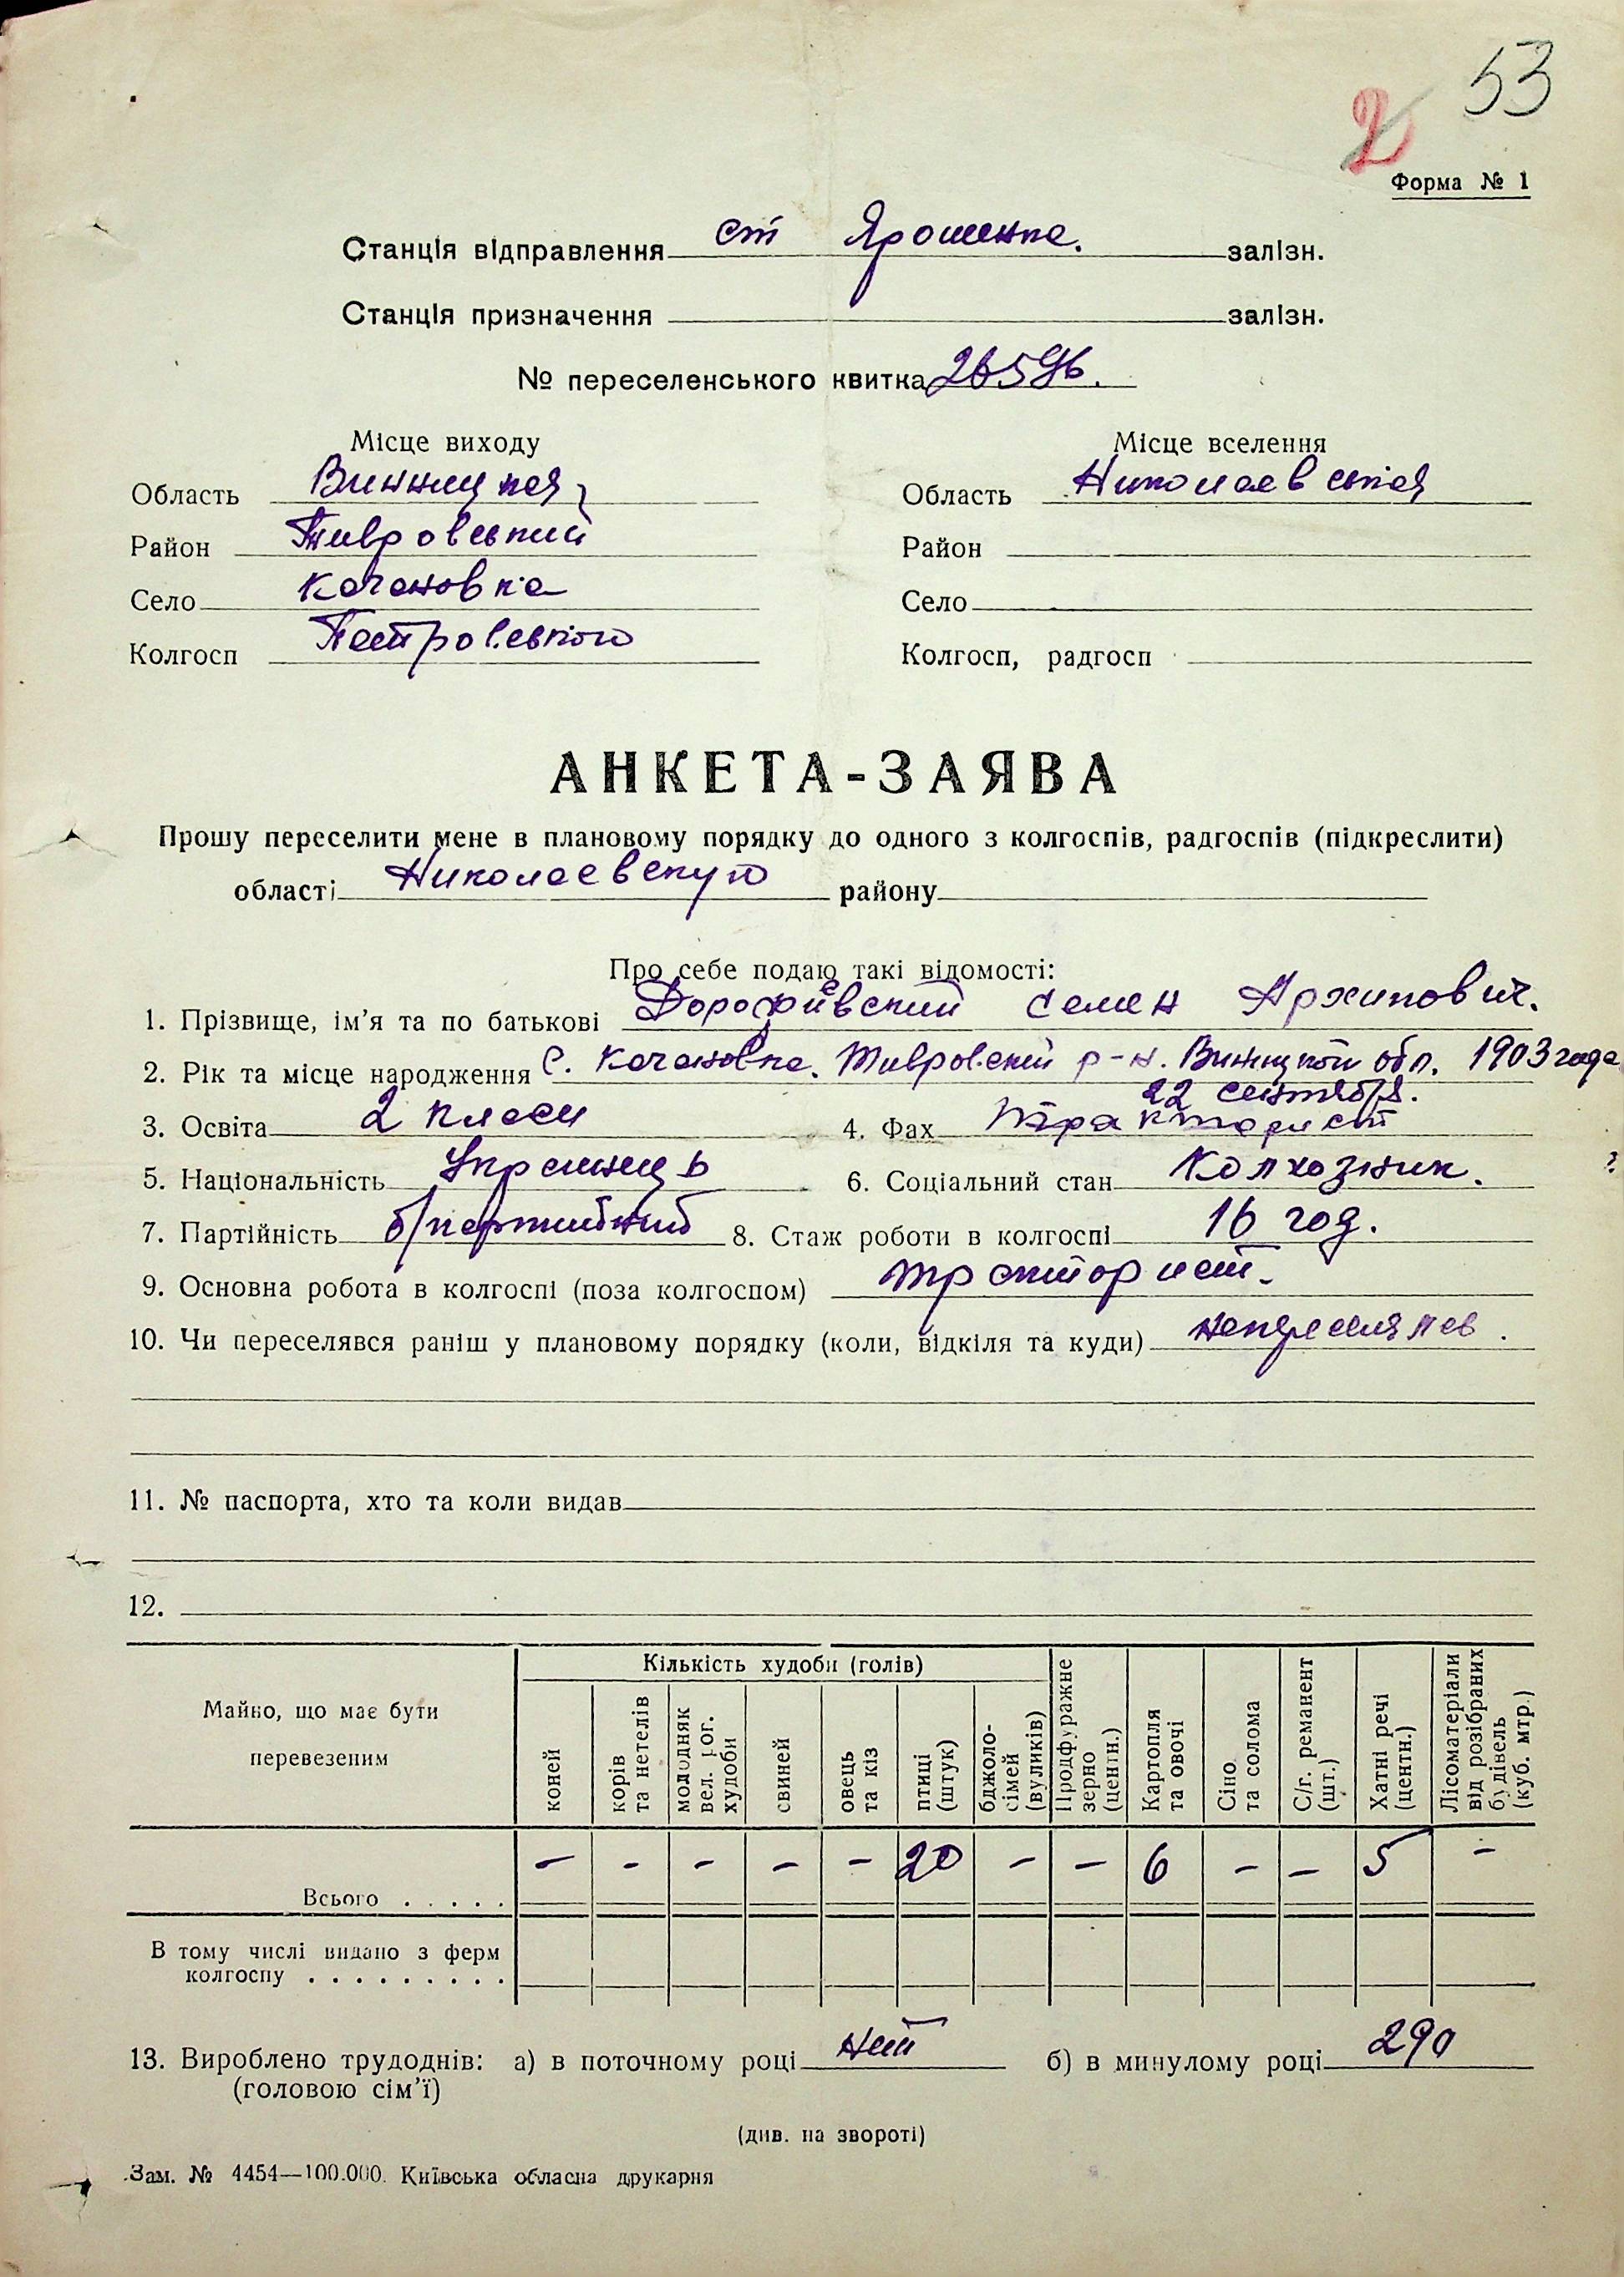 53
2
Форма № 1
Станція відправлення ст Ярошенка. залізн.
Станція призначення залізн.
№ переселенського квитка
Місце виходу
Місце вселення
Область Винницкая
Область Николаевская
Район Тивровский
Район
Село Качановка
Село
Колгосп Петровського
Колгосп, радгосп
АНКЕТА-ЗАЯВА
Прошу переселити мене в плановому порядку до одного з колгоспів, радгоспів (підкреслити)
області Николаевскую району
Про себе подаю такі відомості:
1. Прізвище, ім'я та по батькові Дорофиевский Семен Архипович.
2. Рік та місце народження С. Качановка. Тивровский р-н. Винницкой обл. 1903 года
22 сентября.
3. Освіта 2 класи 4. Фах тракторист
5. Національність Украинець 6. Соціальний стан Колхозник.
7. Партійність б/партийний 8. Стаж роботи в колгоспі 16 год.
9. Основна робота в колгоспі (поза колгоспом) тракторист.
10. Чи переселявся раніш у плановому порядку (коли, відкіля та куди) непереселялся.
11. № паспорта, хто та коли видав
12.
Майно, що має бути перевезеним
Кількість худоби (голів)
коней
корів та нетелів
молодняк вел. рог. худоби
свиней
овець та кіз
птиці (штук)
бджолосімей (вуликів)
Продфуражне зерно (центн.)
Картопля та овочі
Сіно та солома
С/г. реманент (шт.)
Хатні речі (центн.)
Лісоматеріали від розібраних будівель (куб. мтр.)
Всього . . . . . – – – – – 20 – – 6 – – 5 –
В тому числі видано з ферм
колгоспу . . . . . . . . .
13. Вироблено трудоднів: а) в поточному році нет б) в минулому році 290
(головою сім'ї)
(див. на звороті)
Зам. № 4454—100.000. Київська обласна друкарня